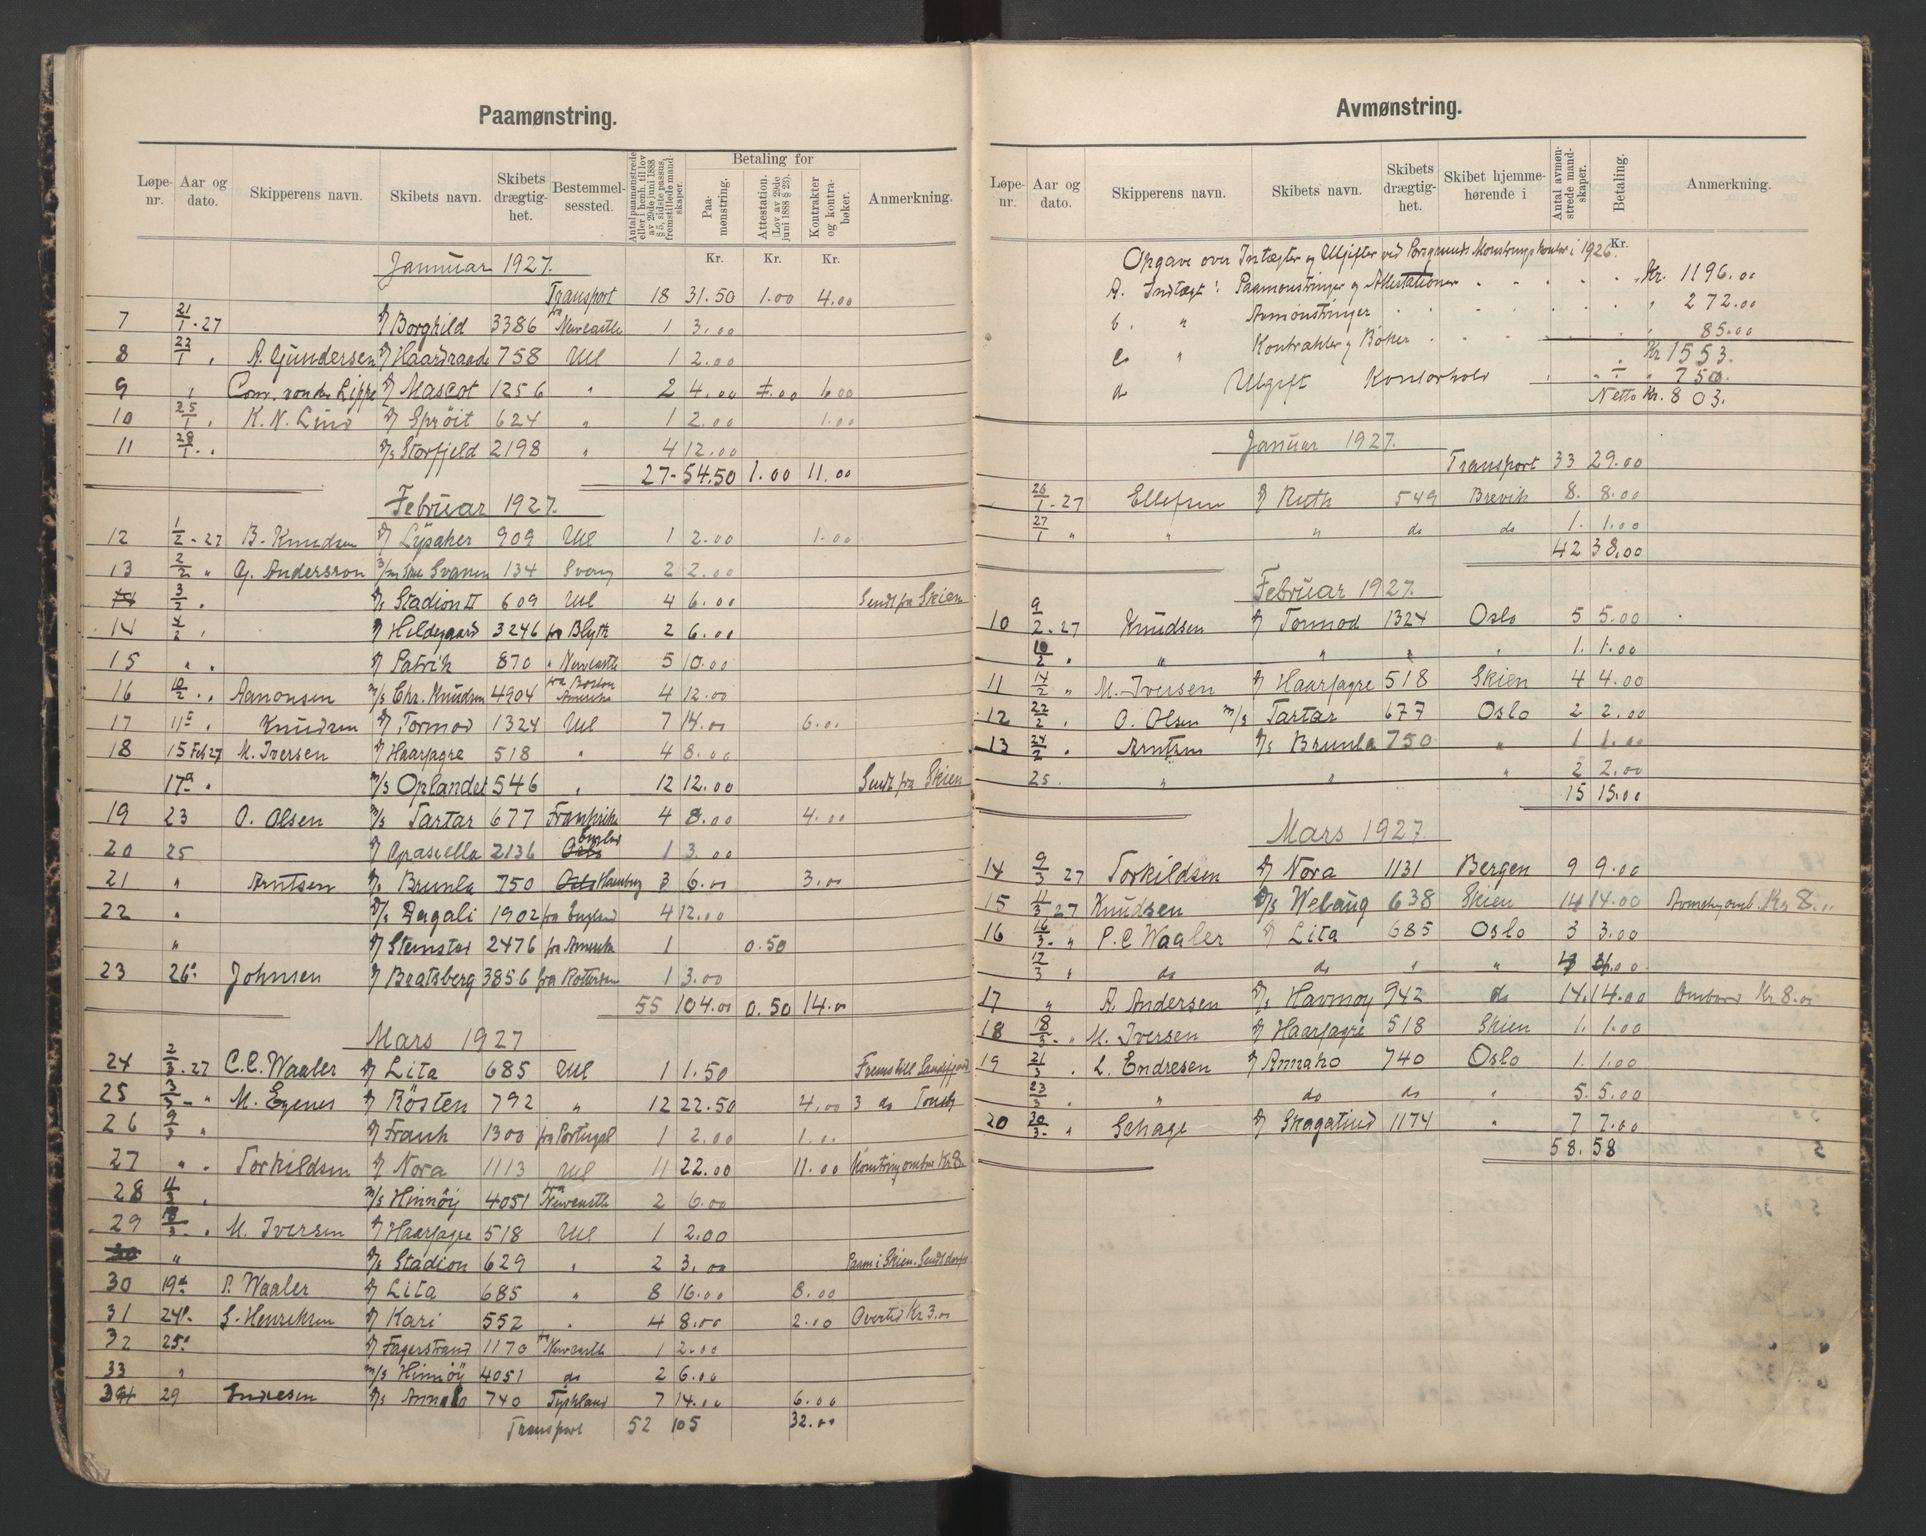 Paamønstring.
Løpe-nr. Aar og dato. Skipperens navn. Skibets navn. Skibets drægtig-het. Bestemmel-sessted. Antal paamønstrede eller i henh. til lov av 29de juni 1888 § 5, sidste passus, fremstillede mand-skaper. Betaling for Paa-mønstring. Attestation. (Lov av 29de juni 1888 § 23). Kontrakter og kontra-bøker. Anmerkning.
Januar 1927. Kr. Kr. Kr.
Transport 18 31.50 1.00 4.00
7 21/1 - 27 Borghild 3386 fra Newcastle 1 3.00
8 22/1 " A. Gundersen Haardraade 758 Utl 1 2.00
9 " Conr. von der Lippe Mascot 1256 " 2 4.00 6.00
10 25/1 " K. N. Lind Sprøit 624 " 1 2.00 1.00
11 28/1 " Storfjeld 2198 " 4 12.00
27 - 54.50 1.00 11.00
Februar 1927.
12 1/2 - 27 B. Knudsen Lysaker 909 Utl 1 2.00 1.00
13 2/2 " G. Andersson Svanen 134 Sverig 2 2.00
3/2 " Stadion II 609 Utl 4 6.00 Sendt fra Skien
14 4/2 " Hildegaard 3246 fra Blyth 2 6.00
15 " " Patrik 870 " Newcastle 5 10.00
16 10/2 " Aanonsen m/s Chr. Knudsen 4904 fra Boston Amerika 4 12.00
17 11 " Knudsen Tormod 1324 Utl 7 14.00 6.00
18 15 Feb 27 M. Iversen Haarfagre 518 " 4 8.00
17 " m/s Oplandet 546 " 12 12.00 Sendt fra Skien
19 23 O. Olsen m/s Tartar 677 Frankrike 4 8.00 4.00
20 25 Graziella 2136 England 1 3.00
21 " Arntsen Brunla 750 Oslo Hamburg 3 6.00 3.00
22 " Dagali 1902 fra England 4 12.00
" Stemstad 2476 fra Amerika 1 0.50
23 26 Johnsen Bratsberg 3856 fra Rotterdam 1 3.00
55 104.00 0.50 14.00
Mars 1927
24 2/3 - 27 C. C. Waaler Lita 685 Utl 1 1.50 Fremstill Sandefjord
25 3/3 - " M. Egenes Røsten 792 " 12 22.50 4.00 3 do
26 9/3 " Frank 1300 fra Portugal 1 2.00 1.00
27 " " Torkildsen Nora 1113 Utl 11 22.00 11.00 Kr 8.
28 11/3 " m/s Hinnöy 4051 fra Newcastle 2 6.00
29 18/3 " M. Iversen Haarfagre 518 Utl 1 2.00
30 " Stadion 629 " 2 3.00 Paam i Skien. Sendt derfra
30 19 P. Waaler Lita 685 " 8 16.00 8.00
31 24 S. Henriksen Kari 552 " 4 8.00 2.00 Overtid Kr 3.00
32 25 Fagerstrand 1170 fra Newcastle 1 2.00
33 " m/s Hinnöy 4051 do 2 6.00
34 29 Endresen Annaho 740 Tyskland 7 14.00 6.00
Transport 52 105 32.00
Avmønstring.
Løpe-nr. Aar og dato. Skipperens navn. Skibets navn. Skibets drægtig-het. Skibet hjemme-hørende i Antal avmøn-strede mand-skaper. Betaling. Anmerkning.
Kr.
Opgave over Indtægter og Utgifter ved Porsgrunds Mønstringskontor i 1926.
A. Indtægt: Paamønstringer og Attestationer Kr. 1196.00
b. " Avmønstringer " 272.00
c. " Kontrakter og Bøker " 85.00
Kr 1553.
d Utgift Kontorhold ÷ " 750.
Netto Kr. 803.
Januar 1927.
Transport 33 29.00
26/1 - 27 Ellefsen Ruth 549 Brevik 8. 8.00
27/1 " " " do do 1. 1.00
42 38.00
Februar 1927.
10 9/2 - 27 Knudsen Tormod 1324 Oslo 5 5.00
10/2 " " " " " 1. 1.00
11 14/2 " M. Iversen Haarfagre 518 Skien 4 4.00
12 22/2 " O. Olsen m/s Tartar 677 Oslo 2 2.00
13 24/2 " Arntsen Brunla 750 " 1 1.00
25 " " " 2 2.00
15 15.00
Mars 1927.
14 9/3 27 Torkildsen Nora 1131 Bergen 9 9.00
15 11/3 - 27 Knudsen Welaug 638 Skien 14 14.00 Kr 8.
16 16/3 - " P. C Waaler Lita 685 Oslo 3 3.00
17/3 " do do " "
17 " A. Andersen Havmøy 942 do 14. 14.00 Ombord Kr 8.00
18 18/3 - " M. Iversen Haarfagre 518 Skien 1. 1.00
19 21/3 " L. Endresen Annaho 740 Oslo 1. 1.00
23/3 " " do do " 5. 5.00
20 30/3 - " Schage Skagatind 1174 " 7 7.00
58. 58